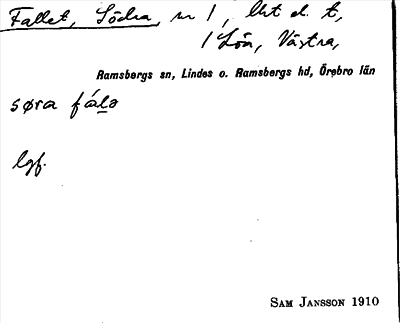 Fallet, Södra, nr 1, lht d. t,
1 Lön, Västra,
Ramsbergs sn, Lindes o. Ramsbergs hd, Örebro län
søra fáḷə
lgf.
SAM JANSSON 1910